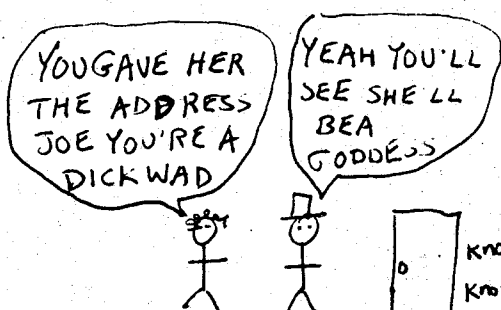 YOU GAVE HER
THE ADDRESS
JOE YOU'RE A
DICKWAD
YEAH YOU'LL
SEE SHE LL
BEA
GODDESS